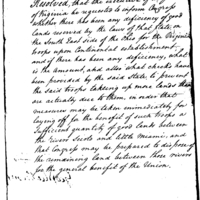 Resolved, that the executive of the State
of Virginia be requested to inform Congress
whether there has been any deficiency of good
lands reserved by the laws of that State, on
the South East side of the Ohio for the Virginia
troops upon Continental establishment,
and if there has been any deficiency, what
is the amount, and also what checks have
been provided by the said State, to prevent
the said troops taking up more lands than
are actually due to them, in order that
measures may be taken immediately for
laying off for the benefit of such troops a
sufficient quantity of good lands between
the rivers Scioto and little Miami, and
that Congress may be prepared to dispose of
the remaining land between those rivers
for the general benefit of the Union.